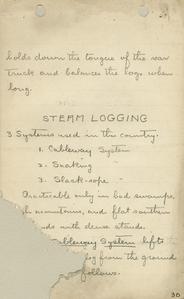 holds down the tongue of the rear
truck and balances the logs when
long.
STEAM LOGGING
3 Systems used in this country:
1. Cableway System
2. Snaking "
3. Slack-rope "
Practicable only in bad swamps,
h mountains, and flat southern
nds with dense stands.
Cableway System lifts
log from the ground
follows.
30